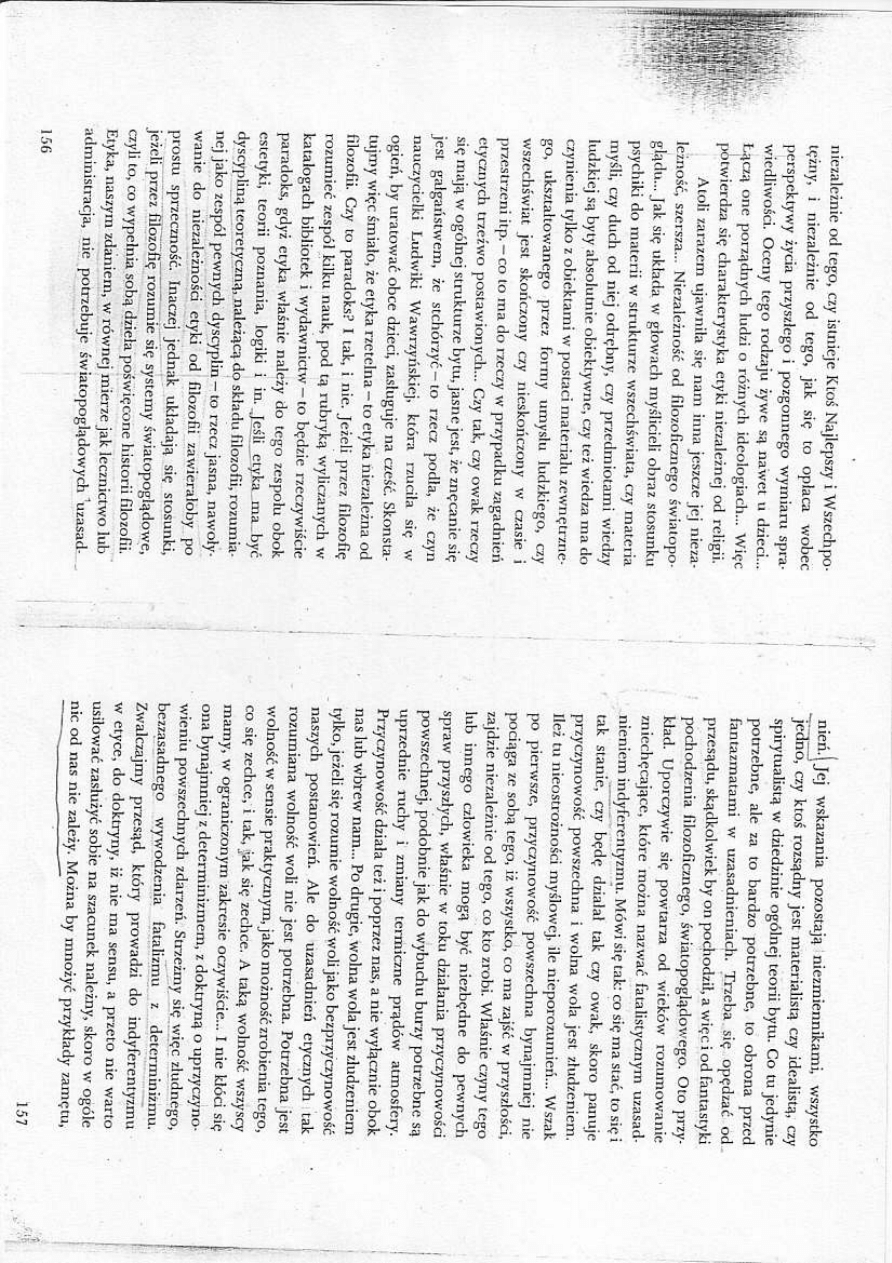 niezależnie od tego, czy istnieje Ktoś Najlepszy i Wszechpo-
tężny, i niezależnie od tego, jak się to opłaca wobec
perspektywy życia przyszłego i pozgonnego wymiaru spra-
wiedliwości. Oceny tego rodzaju żywe są nawet u dzieci...
Łączą one porządnych ludzi o różnych ideologiach... Więc
potwierdza się charakterystyka etyki niezależnej od religii.
Atoli zarazem ujawniła się nam inna jeszcze jej nieza-
leżność, szersza... Niezależność od filozoficznego światopo-
glądu... Jak się układa w głowach myślicieli obraz stosunku
psychiki do materii w strukturze wszechświata, czy materia
myśli, czy duch od niej odrębny, czy przedmiotami wiedzy
ludzkiej są byty absolutnie obiektywne, czy też wiedza ma do
czynienia tylko z obiektami w postaci materiału zewnętrzne-
go, ukształtowanego przez formy umysłu ludzkiego, czy
wszechświat jest skończony czy nieskończony w czasie i
przestrzeni itp. – co to ma do rzeczy w przypadku zagadnień
etycznych trzeźwo postawionych... Czy tak, czy owak rzeczy
się mają w ogólnej strukturze bytu, jasne jest, że znęcanie się
jest gałgaństwem, że stchórzyć – to rzecz podła, że czyn
nauczycielki Ludwiki Wawrzyńskiej, która rzuciła się w
ogień, by uratować obce dzieci, zasługuje na cześć. Skonsta-
tujmy więc śmiało, że etyka rzetelna – to etyka niezależna od
filozofii. Czy to paradoks? I tak, i nie. Jeżeli przez filozofię
rozumieć zespół kilku nauk, pod tą rubryką wyliczanych w
katalogach bibliotek i wydawnictw – to będzie rzeczywiście
paradoks, gdyż etyka właśnie należy do tego zespołu obok
estetyki, teorii poznania, logiki i in. Jeśli etyka ma być
dyscypliną teoretyczną, należącą do składu filozofii, rozumia-
nej jako zespół pewnych dyscyplin – to rzecz jasna, nawoły-
wanie do niezależności etyki od filozofii zawierałoby po
prostu sprzeczność. Inaczej jednak układają się stosunki,
jeżeli przez filozofię rozumie się systemy światopoglądowe,
czyli to, co wypełnia sobą dzieła poświęcone historii filozofii.
Etyka, naszym zdaniem, w równej mierze jak lecznictwo lub
administracja, nie potrzebuje światopoglądowych uzasad-
156
nień. Jej wskazania pozostają niezmiennikami, wszystko
jedno, czy ktoś rozsądny jest materialistą czy idealistą, czy
spirytualistą w dziedzinie ogólnej teorii bytu. Co tu jedynie
potrzebne, ale za to bardzo potrzebne, to obrona przed
fantazmatami w uzasadnieniach. Trzeba się opędzać od
przesądu, skądkolwiek by on pochodził, a więc i od fantastyki
pochodzenia filozoficznego, światopoglądowego. Oto przy-
kład. Uporczywie się powtarza od wieków rozumowanie
zniechęcające, które można nazwać fatalistycznym uzasad-
nieniem indyferentyzmu. Mówi się tak: co się ma stać, to się i
tak stanie, czy będę działał tak czy owak, skoro panuje
przyczynowość powszechna i wolna wola jest złudzeniem.
Ileż tu nieostrożności myślowej, ile nieporozumień... Wszak
po pierwsze, przyczynowość powszechna bynajmniej nie
pociąga ze sobą tego, iż wszystko, co ma zajść w przyszłości,
zajdzie niezależnie od tego, co kto zrobi. Właśnie czyny tego
lub innego człowieka mogą być niezbędne do pewnych
spraw przyszłych, właśnie w toku działania przyczynowości
powszechnej, podobnie jak do wybuchu burzy potrzebne są
uprzednie ruchy i zmiany termiczne prądów atmosfery.
Przyczynowość działa też i poprzez nas, a nie wyłącznie obok
nas lub wbrew nam... Po drugie, wolna wola jest złudzeniem
tylko, jeżeli się rozumie wolność woli jako bezprzyczynowość
naszych postanowień. Ale do uzasadnień etycznych tak
rozumiana wolność woli nie jest potrzebna. Potrzebna jest
wolność w sensie praktycznym, jako możność zrobienia tego,
co się zechce, i tak, jak się zechce. A taką wolność wszyscy
mamy, w ograniczonym zakresie oczywiście... I nie kłóci się
ona bynajmniej z determinizmem, z doktryną o uprzyczyno-
wieniu powszechnych zdarzeń. Strzeżmy się więc złudnego,
bezzasadnego wywodzenia fatalizmu z determinizmu.
Zwalczajmy przesąd, który prowadzi do indyferentyzmu
w etyce, do doktryny, iż nie ma sensu, a przeto nie warto
usiłować zasłużyć sobie na szacunek należny, skoro w ogóle
nic od nas nie zależy. Można by mnożyć przykłady zamętu,
157